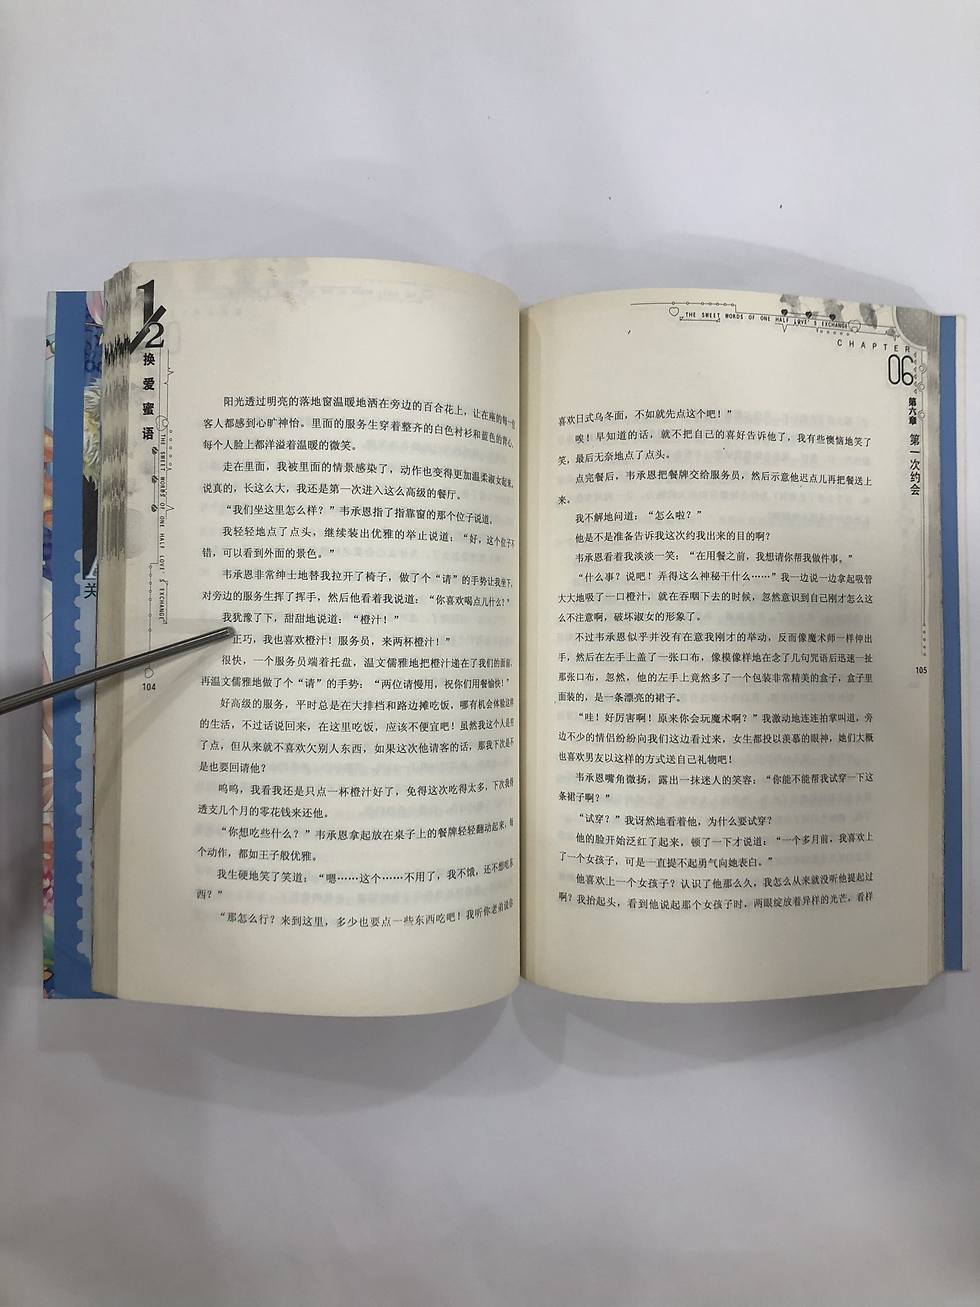 1/2
换爱蜜语
THE SWEET WORDS OF ONE HALF LOVE'S EXCHANGE
阳光透过明亮的落地窗温暖地洒在旁边的百合花上，让在座的每一位
客人都感到心旷神怡。里面的服务生穿着整齐的白色衬衫和蓝色的背心，
每个人脸上都洋溢着温暖的微笑。
走在里面，我被里面的情景感染了，动作也变得更加温柔淑女起来，
说真的，长这么大，我还是第一次进入这么高级的餐厅。
“我们坐这里怎么样？”韦承恩指了指靠窗的那个位子说道。
我轻轻地点了点头，继续装出优雅的举止说道：“好，这个位子不
错，可以看到外面的景色。”
韦承恩非常绅士地替我拉开了椅子，做了个“请”的手势让我坐下，
对旁边的服务生挥了挥手，然后他看着我说道：“你喜欢喝点儿什么？”
我犹豫了下，甜甜地说道：“橙汁！”
正巧，我也喜欢橙汁！服务员，来两杯橙汁！”
很快，一个服务员端着托盘，温文儒雅地把橙汁递在了我们的面前，
再温文儒雅地做了个“请”的手势：“两位请慢用，祝你们用餐愉快！”
好高级的服务，平时总是在大排档和路边摊吃饭，哪有机会体验这样
的生活，不过话说回来，在这里吃饭，应该不便宜吧！虽然我这个人是穷
了点，但从来就不喜欢欠别人东西，如果这次他请客的话，那我下次是不
是也要回请他？
呜呜，我看我还是只点一杯橙汁好了，免得这次吃得太多，下次我得
透支几个月的零花钱来还他。
“你想吃些什么？”韦承恩拿起放在桌子上的餐牌轻轻翻动起来，每
个动作，都如王子般优雅。
我生硬地笑了笑道：“嗯……这个……不用了，我不饿，还不想吃东
西？”
“那怎么行？来到这里，多少也要点一些东西吃吧！我听你老弟说你
104
THE SWEET WORDS OF ONE HALF LOVE'S EXCHANGE
CHAPTER
06
第六章 第一次约会
喜欢日式乌冬面，不如就先点这个吧！”
唉！早知道的话，就不把自己的喜好告诉他了，我有些懊恼地笑了
笑，最后无奈地点了点头。
点完餐后，韦承恩把餐牌交给服务员，然后示意他迟点儿再把餐送上
来。
我不解地问道：“怎么啦？”
他是不是准备告诉我这次约我出来的目的啊？
韦承恩看着我淡淡一笑：“在用餐之前，我想请你帮我做件事。”
“什么事？说吧！弄得这么神秘干什么……”我一边说一边拿起吸管
大大地吸了一口橙汁，就在吞咽下去的时候，忽然意识到自己刚才怎么这
么不注意啊，破坏淑女的形象了。
不过韦承恩似乎并没有在意我刚才的举动，反而像魔术师一样伸出
手，然后在左手上盖了一张口布，像模像样地在念了几句咒语后迅速一扯
那张口布，忽然，他的左手上竟然多了一个包装非常精美的盒子，盒子里
面装的，是一条漂亮的裙子。
“哇！好厉害啊！原来你会玩魔术啊？”我激动地连连拍掌叫道，旁
边不少的情侣纷纷向我们这边看过来，女生都投以羡慕的眼神，她们大概
也喜欢男友以这样的方式送自己礼物吧！
韦承恩嘴角微扬，露出一抹迷人的笑容：“你能不能帮我试穿一下这
条裙子啊？”
“试穿？”我讶然地看着他，为什么要试穿？
他的脸开始泛红了起来，顿了一下才说道：“一个多月前，我喜欢上
了一个女孩子，可是一直提不起勇气向她表白。”
他喜欢上一个女孩子？认识了他那么久，我怎么从来就没听他提起过
啊？我抬起头，看到他说起那个女孩子时，两眼绽放着异样的光芒，看样
105
关